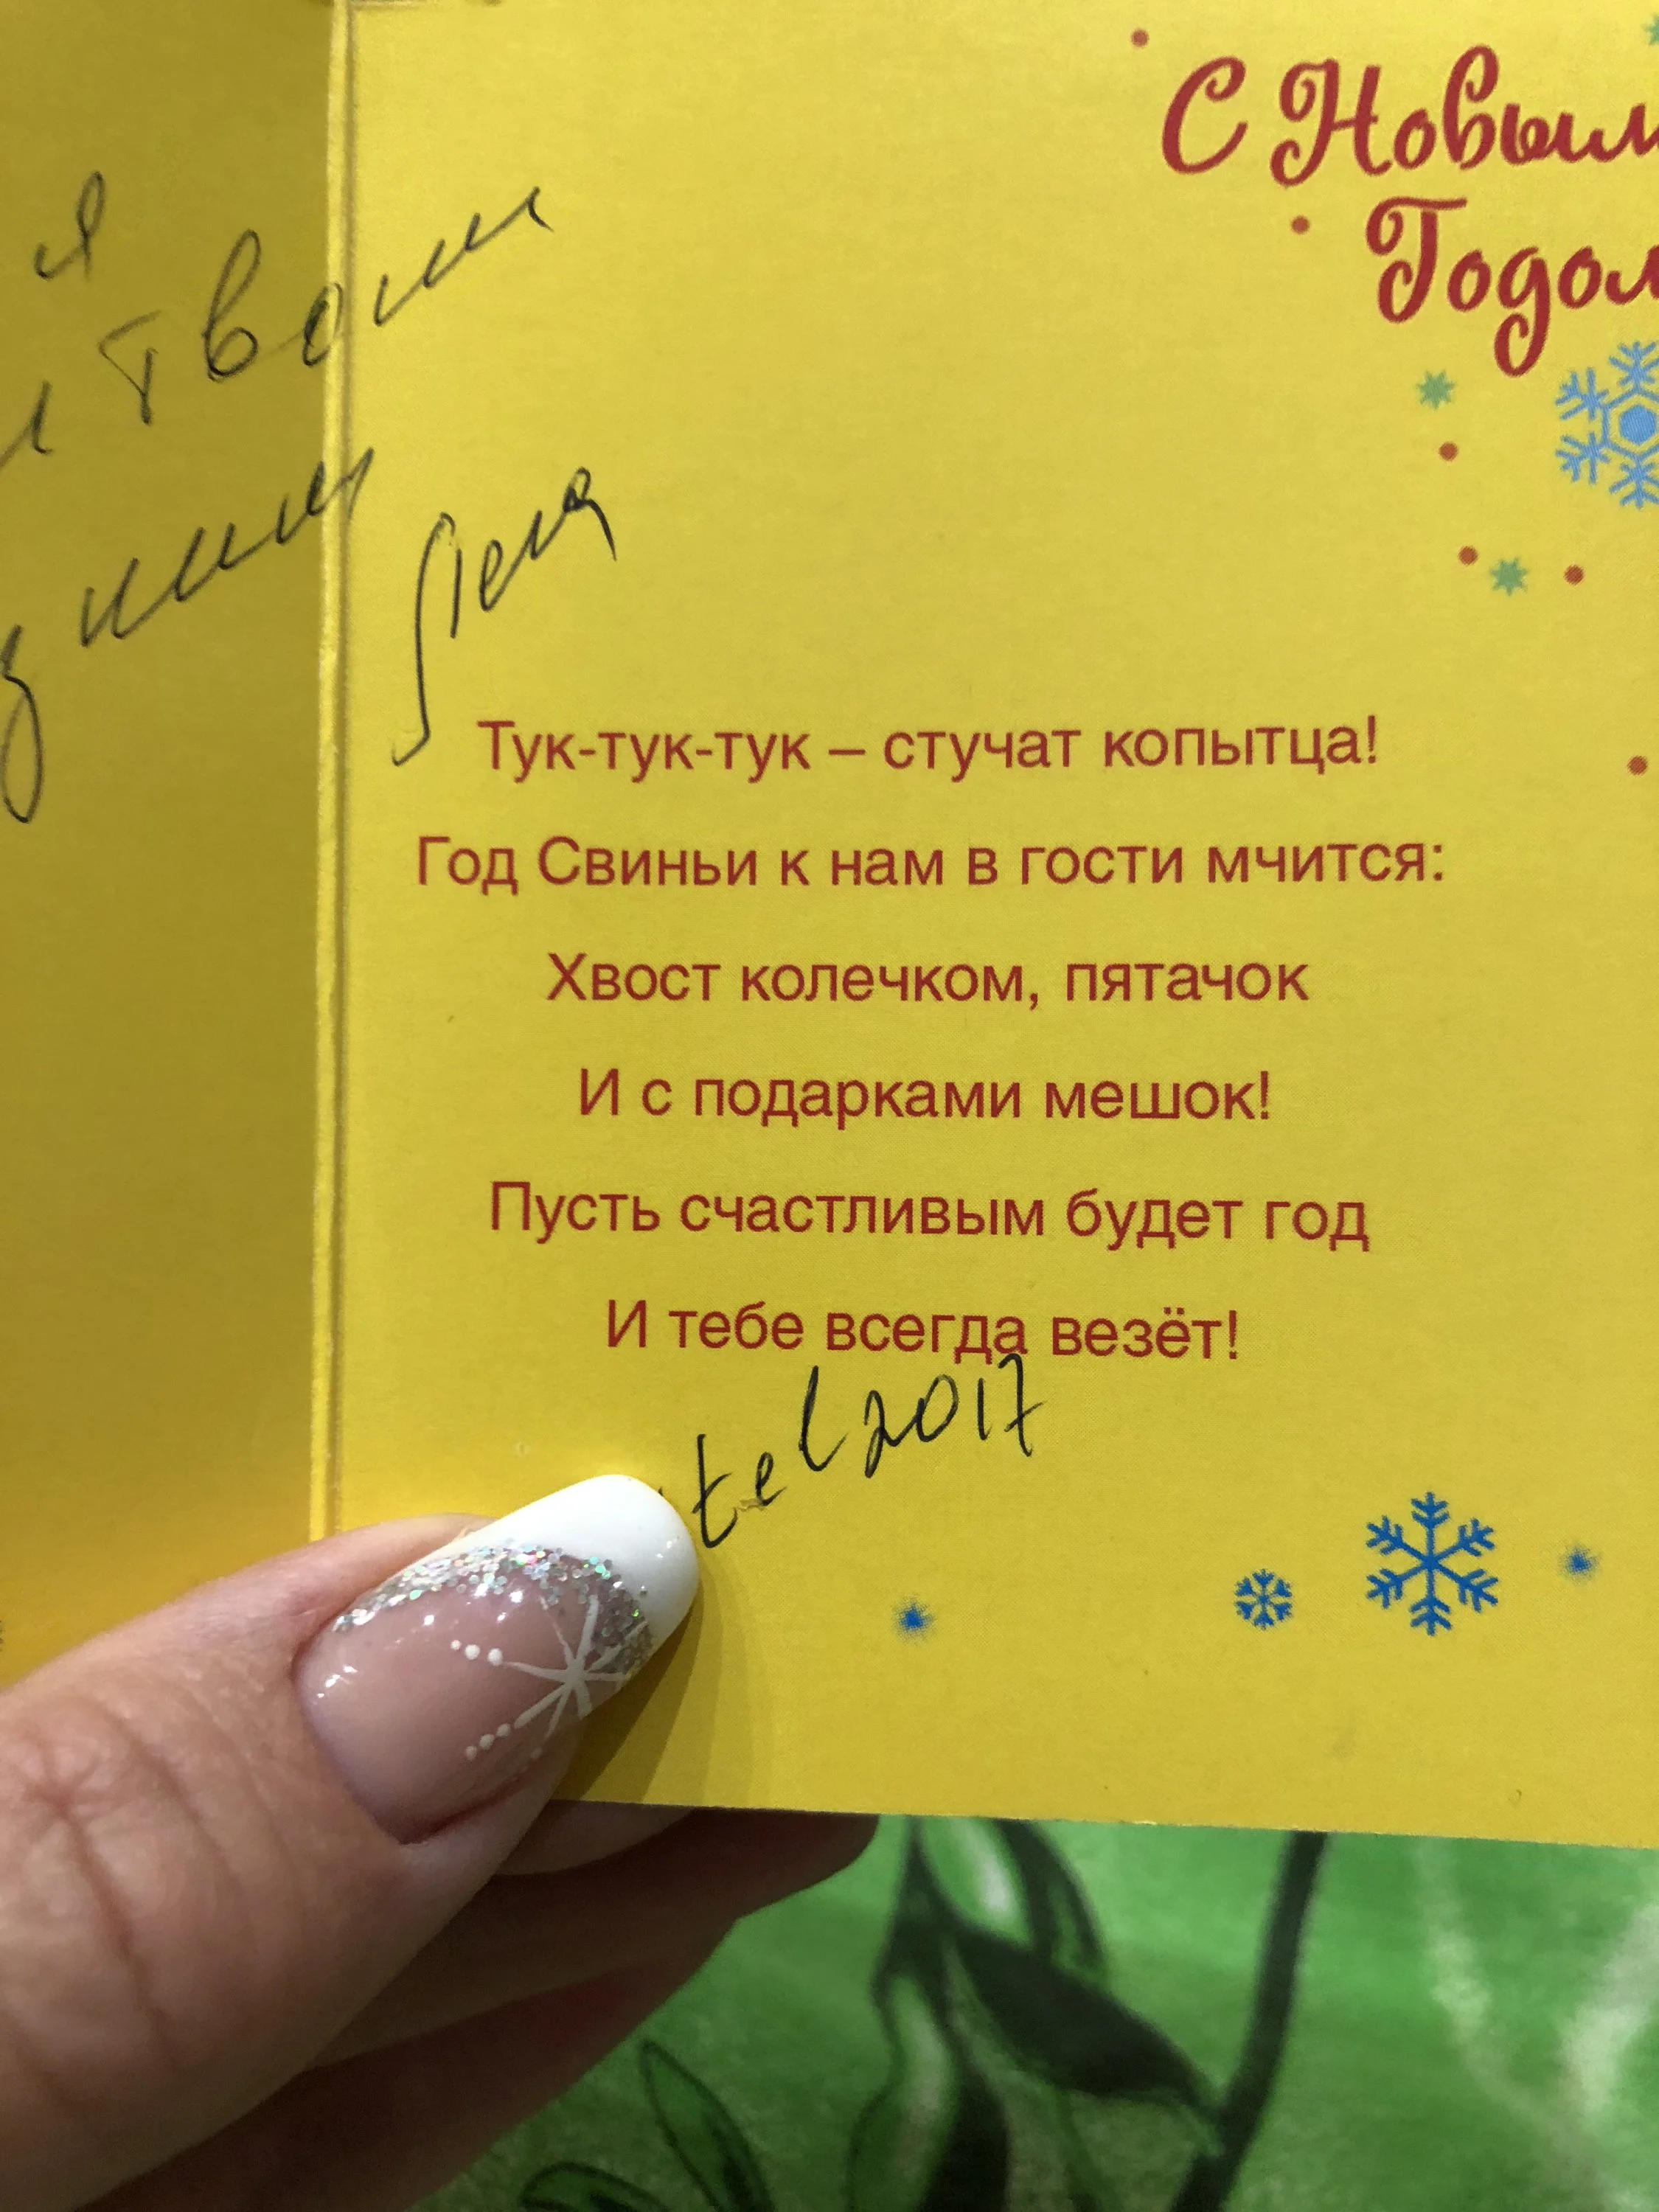 С Новым
Годом
я
твоим
Лена
Тук-тук-тук – стучат копытца!
Год Свиньи к нам в гости мчится:
Хвост колечком, пятачок
И с подарками мешок!
Пусть счастливым будет год
И тебе всегда везёт!
tel2017